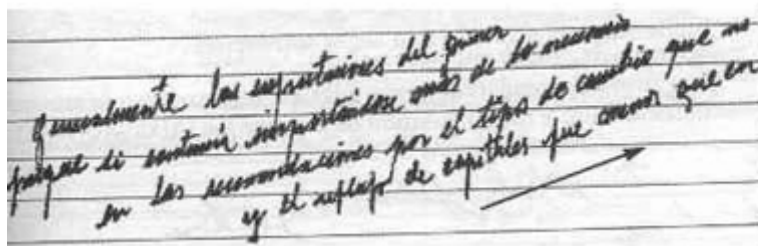 generalmente las importaciones del primer
porque si continuir importándose más de lo necesario
en las recomendaciones por el tipo de cambio que no
y el reflujo de capitales fue menor que en